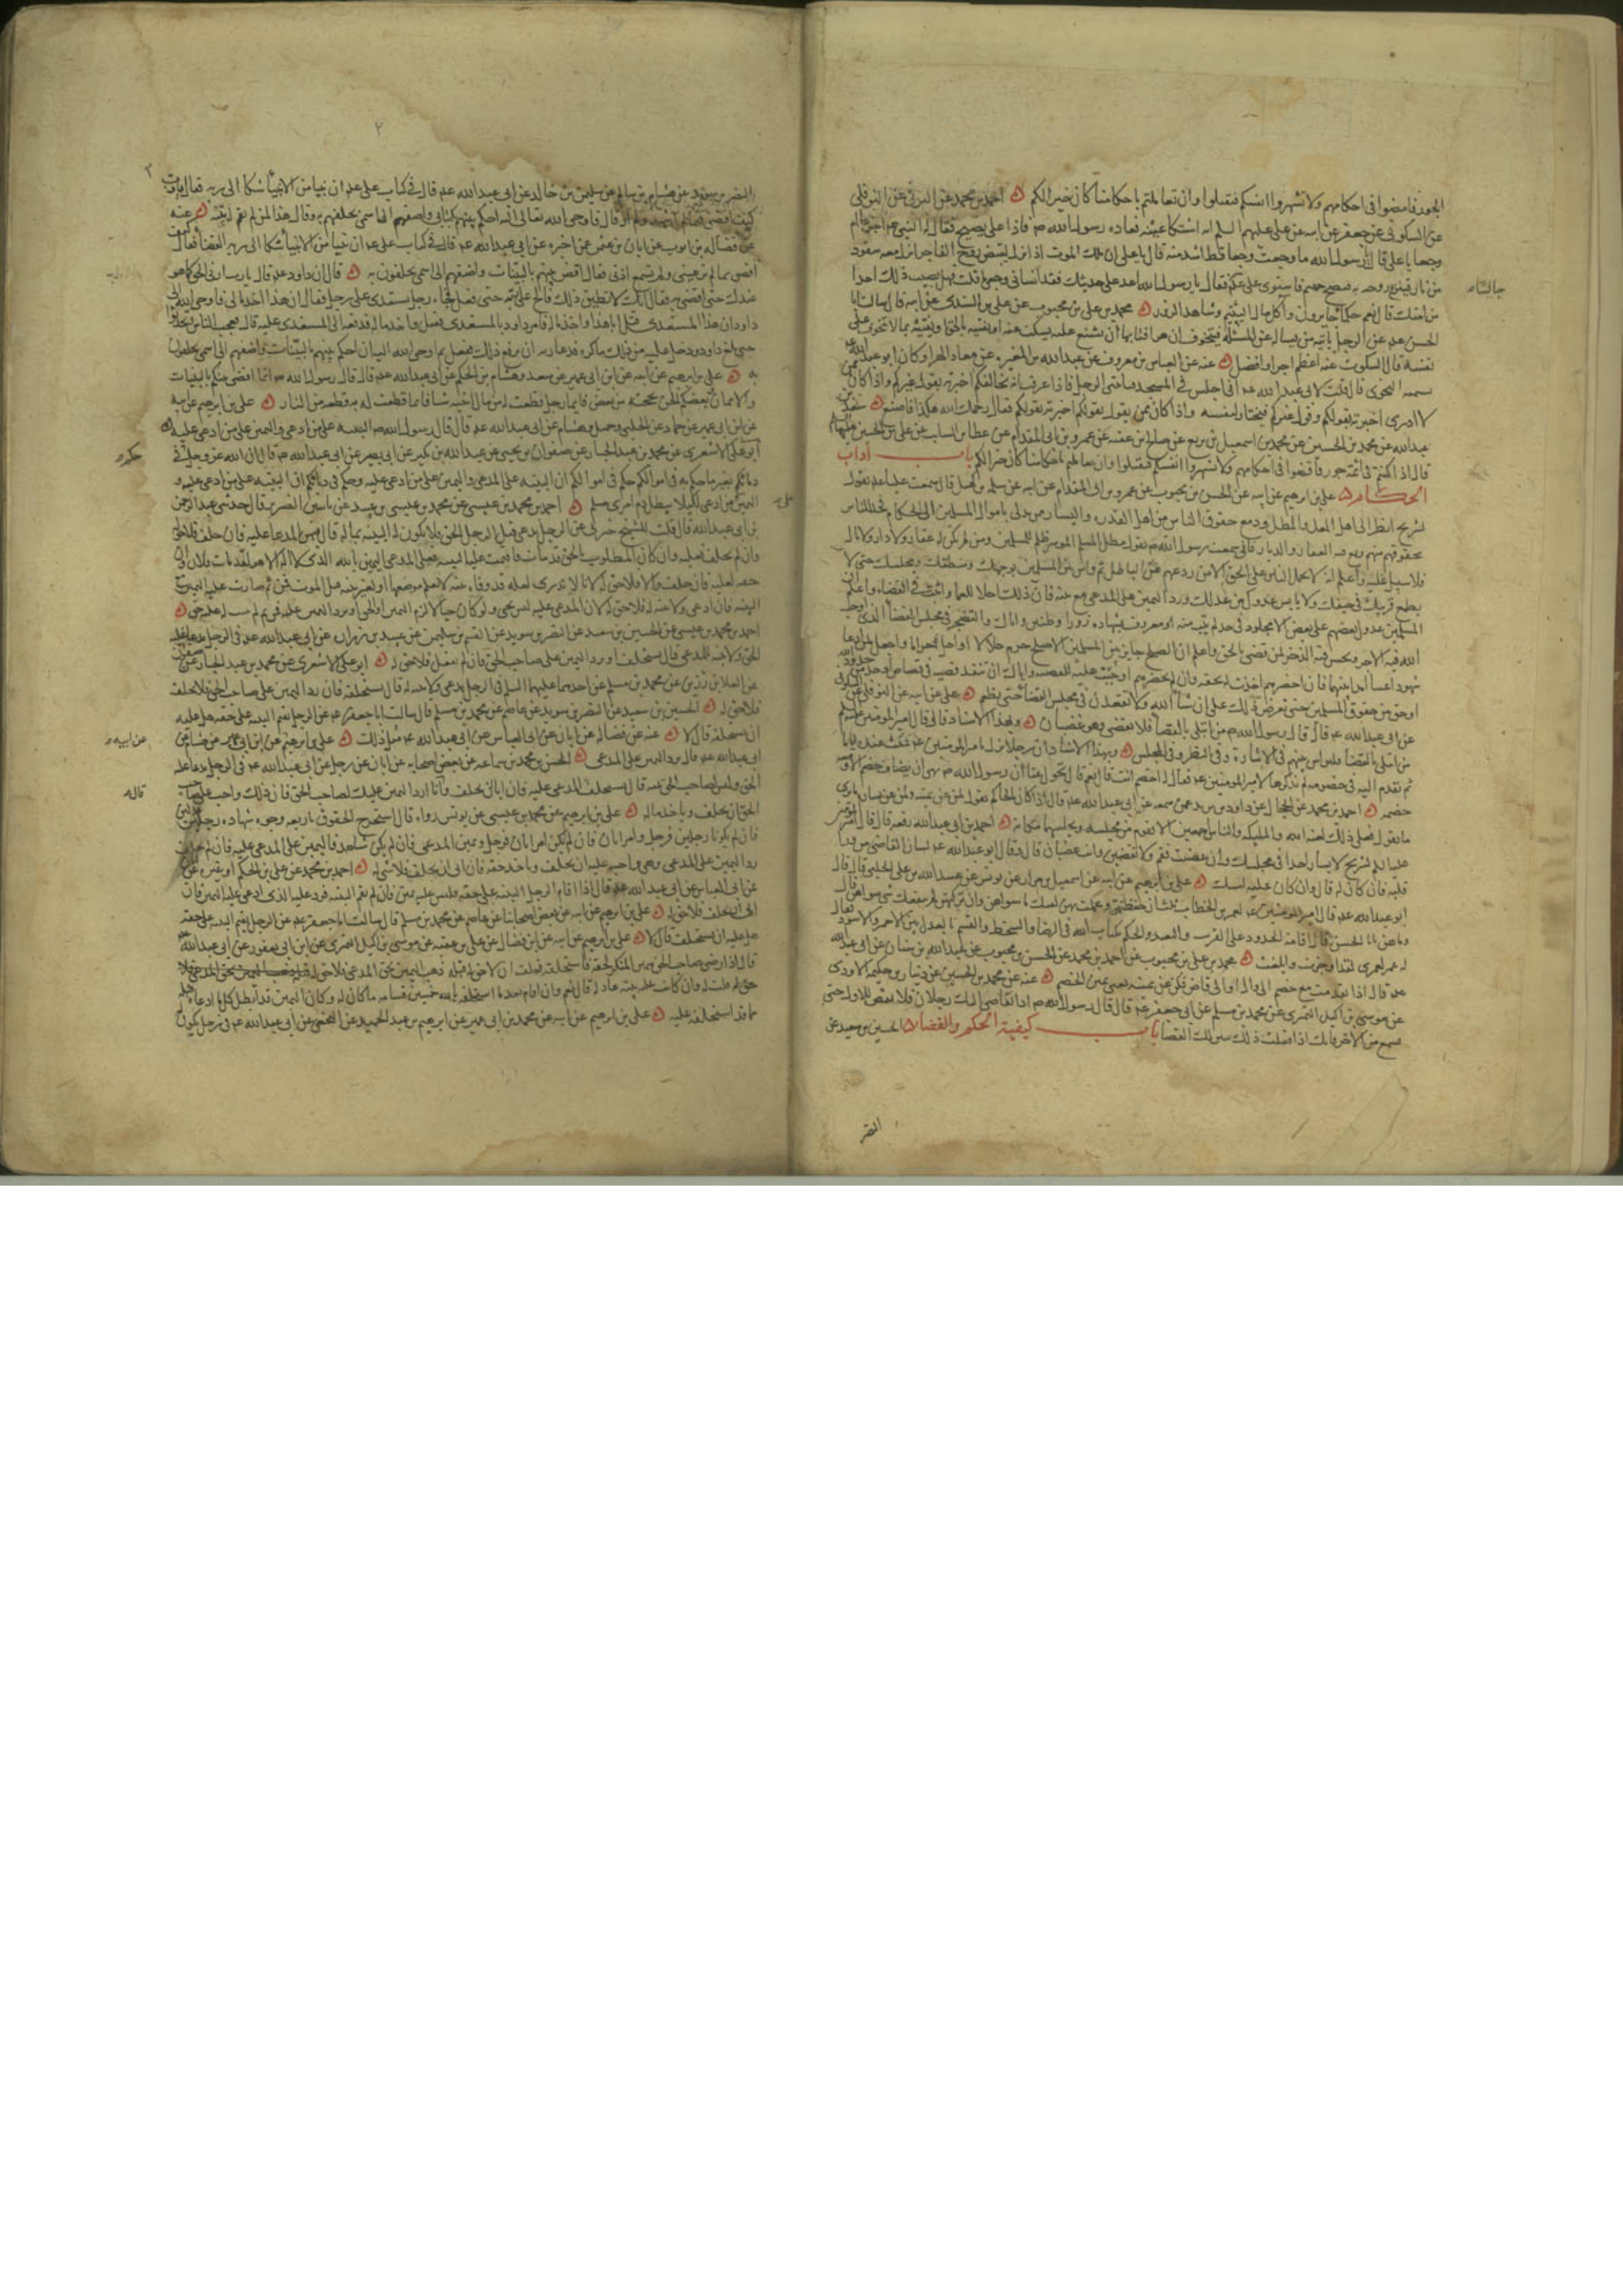 الجور فامضوا في احكامهم ولا تشهروا انفسكم فتقتلوا وان تعاملتم باحكامنا كان خيرا لكم احمد بن محمد عن البرقي عن النوفلي
عن السكوني عن جعفر عن ابيه عن علي عليهم السلم انه اشتكا عينه فعاده رسول الله ص فاذا علي يصيح فقال له النبي
وجعا يا علي قال يا رسول الله ما وجعت وجعا قط اشد منه قال يا علي ان ملك الموت اذا نزل لقبض روح الفاجر انزل معه سفود
من نار فينزع روحه به فتصيح جهنم فاستوى علي فقال يا رسول الله اعد علي حديثك فقد انساني وجعي ما قلت فهل يصيب ذلك احدا
من امتك قال نعم حكاما جايرون وآكل مال اليتيم وشاهد الزور محمد بن علي بن محبوب عن علي بن السندي عن ابيه قال سالت ابا
الحسن عن الرجل ياتيه من يسأله عن المسئلة فيتخوف ان هو افتا بها ان يشنع عليه فيسكت عنه او يفتيه بالحق او يفتيه بما لا يتخوف على
نفسه قال السكوت عنه اعظم اجرا وافضل عنه عن العباس بن معروف عن عبد الله بن المغيره عن معاذ الهرا وكان ابو عبد الله
يسميه النحوي قال قلت لابي عبد الله اني اجلس في المسجد فياتيني الرجل فاذا عرفت انه يخالفكم اخبرته بقول غيركم واذا كان
لا ادري اخبرته بقولكم وقول غيركم فيختار لنفسه واذا كان ممن يقول بقولكم اخبرته بقولكم فقال رحمك الله هكذا فاصنع
عبد الله عن محمد بن الحسين عن محمد بن اسمعيل بن بزيع عن صالح بن عقبه عن عمرو بن ابي المقدام عن عطا بن السايب عن علي بن الحسين
قال اذا كنتم في ائمة جور فاقضوا في احكامهم ولا تشهروا انفسكم فتقتلوا وان تعاملتم باحكامنا كان خيرا لكم باب آداب
الحكام علي بن ابرهيم عن ابيه عن الحسن بن محبوب عن عمرو بن ابي المقدام عن ابيه عن سلمه بن كهيل قال سمعت عليا يقول
لشريح انظر الى اهل المعل والمطل ودفع حقوق الناس من اهل القدرة واليسار ممن يدلي باموال المسلمين الى الحكام فخذ للناس
بحقوقهم منهم وبع فيه العقار والديار فاني سمعت رسول الله ص يقول مطل المسلم الموسر ظلم للمسلمين ومن لم يكن له عقار ولا دار ولا مال
فلا سبيل عليه واعلم انه لا يحمل الناس على الحق الا من وزعهم عن الباطل ثم واس بين المسلمين بوجهك ومنطقك ومجلسك حتى لا
يطمع قريبك في حيفك ولا يايس عدوك من عدلك ورد اليمين على المدعي مع بينته فان ذلك اجلا للعما واثبت في القضاء واعلم ان
المسلمين عدول بعضهم على بعض الا مجلود في حد لم يتب منه او معروف بشهادة زور او ظنين واياك والتضجر في مجلس القضا الذي اوجب
الله فيه الاجر ويحسن فيه الذخر لمن قضى بالحق واعلم ان الصلح جايز بين المسلمين الا صلح حرم حلالا او احل حراما واجعل لمن ادعا
شهودا غيبا امدا بينهما فان احضرهم اخذت له بحقه وان لم يحضرهم اوجبت عليه القضيه واياك ان تنفذ قضيه في قصاص او حد من حدود الله
او حق من حقوق المسلمين حتى تعرض ذلك علي ان شاء الله ولا تقعدن في مجلس القضا حتى تطعم علي عن ابيه عن النوفلي عن السكوني
عن ابي عبد الله قال قال رسول الله ص من ابتلي بالقضا فلا يقضي وهو غضبان وبهذا الاسناد قال قال امير المؤمنين
من ابتلي بالقضا فليواس بينهم في الاشارة وفي النظر وفي المجلس وبهذا الاسناد ان رجلا نزل بامير المومنين فمكث عنده اياما
ثم تقدم اليه في خصومه لم يذكرها لامير المومنين فقال له اخصم انت قال نعم قال تحول عنا ان رسول الله ص نهى ان يضاف خصم الا ومعه
خصمه احمد بن محمد عن الحجال عن داود بن يزيد عمن سمعه عن ابي عبد الله قال اذا كان الحاكم يقول لمن عن يمينه ولمن عن يساره ما ترى
ما تقول فعلى ذلك لعنة الله والمليكة والناس اجمعين الا يقوم من مجلسه ويجلسهما مكانه احمد بن ابي عبد الله رفعه قال قال امير المؤمنين
عليه السلم لشريح لا تسار احدا في مجلسك وان غضبت فقم ولا تقضين وانت غضبان قال وقال ابو عبد الله لسان القاضي من ورا
قلبه فان كان له قال وان كان عليه امسك علي بن ابرهيم عن ابيه عن اسمعيل بن مرار عن يونس عن عبيد الله بن علي الحلبي قال قال
ابو عبد الله قال امير المؤمنين لعمر بن الخطاب ثلث ان حفظتهن وعملت بهن كفتك ما سواهن وان تركتهن لم ينفعك شي سواهن قال
وما هن يا ابا الحسن قال اقامة الحدود على القريب والبعيد والحكم بكتاب الله في الرضا والسخط والقسم بالعدل بين الاحمر والاسود فقال
له عمر لعمري لقد اوجزت وابلغت محمد بن علي بن محبوب عن احمد بن محمد عن الحسن بن محبوب عن عبد الله بن سنان عن ابي عبد الله
قال اذا تقدمت مع خصم الى وال او الى قاض فكن عن يمينه يعني يمين الخصم عنه عن محمد بن الحسين عن ذبيان بن حكيم الاودي
عن موسى بن اكيل النميري عن محمد بن مسلم عن ابي جعفر قال قال رسول الله ص اذا تقاضى اليك رجلان فلا تقض للاول حتى
تسمع من الاخر فانك اذا فعلت ذلك تبين لك القضا باب كيفية الحكم والقضاء الحسين بن سعيد عن
النضر
النضر بن سويد عن هشام بن سالم عن سليمن بن خالد عن ابي عبد الله قال في كتاب علي ان نبيا من الانبيا شكا الى ربه فقال يا رب
كيف اقضي فيما لم اشهد ولم ار قال فاوحى الله تعالى اليه احكم بينهم بكتابي واضفهم الى اسمي تحلفهم به وقال هذا لمن لم تقم له بينة عنه
عن فضاله بن ايوب عن ابان بن عثمن عمن اخبره عن ابي عبد الله قال في كتاب علي ان نبيا من الانبيا شكا الى ربه القضا فقال كيف
اقضي بما لم تر عيني ولم تسمع اذني فقال اقض بينهم بالبينات واضفهم الى اسمي يحلفون به قال ان داود قال يا رب ارني الحق كما هو
عندك حتى اقضي به فقال انك لا تطيق ذلك فالح على ربه حتى فعل فجاء رجل يستعدي على رجل فقال ان هذا اخذ مالي فاوحى الله الى
داود ان هذا المستعدي قتل ابا هذا واخذ ماله فامر داود بالمستعدي فقتل واخذ ماله فدفعه الى المستعدى عليه قال فعجب الناس وتحدثوا
حتى بلغ داود ودخل عليه من ذلك ما كره فدعا ربه ان يرفع ذلك ففعل ثم اوحى الله اليه ان احكم بينهم بالبينات واضفهم الى اسمي يحلفون
به علي بن ابرهيم عن ابيه عن ابن ابي عمير عن سعد وهشام بن الحكم عن ابي عبد الله قال قال رسول الله ص انما اقضي بينكم بالبينات
والايمان وبعضكم الحن بحجته من بعض فايما رجل قطعت له من مال اخيه شيا فانما قطعت له به قطعة من النار علي بن ابرهيم عن ابيه
عن ابن ابي عمير عن حماد عن الحلبي وجميل وهشام عن ابي عبد الله قال قال رسول الله ص البينة على من ادعى واليمين على من ادعي عليه
ابو علي الاشعري عن محمد بن عبد الجبار عن صفوان بن يحيى عن عبد الله بن بكير عن ابي بصير عن ابي عبد الله قال ان الله عز وجل حكم في
دمائكم بغير ما حكم به في اموالكم حكم في اموالكم ان البينة على المدعي واليمين على من ادعي عليه وحكم في دمائكم ان البينة على من ادعي عليه و
اليمين على من ادعى لكيلا يبطل دم امرئ مسلم احمد بن محمد بن عيسى عن محمد بن عيسى بن عبيد عن ياسين الضرير قال حدثني عبد الرحمن
بن ابي عبد الله قال قلت للشيخ خبرني عن الرجل يدعي قبل الرجل الحق فلا يكون له البينة بماله قال فيمين المدعا عليه فان حلف فلا حق له
وان لم يحلف فعليه وان كان المطلوب بالحق قد مات فاقيمت عليه البينة فعلى المدعي اليمين بالله الذي لا اله الا هو لقد مات فلان وان
حقه لعليه فان حلف والا فلا حق له لانا لا ندري لعله قد وفاه ببينة لا نعلم موضعها او بغير بينة قبل الموت فمن ثم صارت عليه اليمين مع
البينة فان ادعى ولا بينة له فلا حق له لان المدعى عليه ليس بحي ولو كان حيا لالزم اليمين او الحق او يرد اليمين عليه فمن ثم لم يثبت له عليه حق
احمد بن محمد بن عيسى عن الحسين بن سعيد عن النضر بن سويد عن القسم بن سليمن عن عبيد بن زرارة عن ابي عبد الله في الرجل يدعى عليه
الحق ولا بينة للمدعي قال يستحلف او يرد اليمين على صاحب الحق فان لم يفعل فلا حق له ابو علي الاشعري عن محمد بن عبد الجبار عن صفوان
عن العلا بن رزين عن محمد بن مسلم عن احدهما عليهما السلم في الرجل يدعي ولا بينة له قال يستحلفه فان رد اليمين على صاحب الحق فلم يحلف
فلا حق له الحسين بن سعيد عن النضر بن سويد عن عاصم عن محمد بن مسلم قال سالت ابا جعفر عن الرجل يقيم البينة على حقه هل عليه
ان يستحلف قال لا عنه عن فضاله عن ابان عن ابي العباس عن ابي عبد الله مثل ذلك علي بن ابرهيم عن ابن ابي عمير عن هشام عن
ابي عبد الله قال يرد اليمين على المدعي الحسن بن محمد بن سماعة عن بعض اصحابه عن ابان عن رجل عن ابي عبد الله في الرجل يدعا عليه
الحق وليس لصاحب الحق بينة قال يستحلف المدعى عليه فان ابا ان يحلف وقال انا ارد اليمين عليك لصاحب الحق فان ذلك واجب على صاحب
الحق ان يحلف وياخذ ماله علي بن ابرهيم عن محمد بن عيسى عن يونس رواه قال استخرج الحقوق باربعة وجوه شهادة رجلين عدلين
فان لم يكونا رجلين فرجل وامراتان فان لم تكن امراتان فرجل ويمين المدعي فان لم يكن شاهد فاليمين على المدعى عليه فان لم يحلف
رد اليمين على المدعي وهي واجبة عليه ان يحلف وياخذ حقه فان ابى ان يحلف فلا شي له احمد بن محمد عن علي بن الحكم او غيره عن ابان
عن ابي العباس عن ابي عبد الله قال اذا اقام الرجل البينة على حقه فليس عليه يمين فان لم يقم البينة فرد عليه الذي ادعي عليه اليمين فان
ابى ان يحلف فلا حق له علي بن ابرهيم عن ابيه عن بعض اصحابنا عن عاصم عن محمد بن مسلم قال سالت ابا جعفر عن الرجل يقيم البينة على حقه
هل عليه ان يستحلف قال لا علي بن ابرهيم عن ابيه عن ابن فضال عن علي بن عقبه عن موسى بن اكيل النميري عن ابن ابي يعفور عن ابي عبد الله
قال اذا رضي صاحب الحق بيمين المنكر لحقه فاستحلفه فحلف ان لا حق له قبله ذهب اليمين بحق المدعي فلا
حق له قلت له وان كانت عليه بينة عادلة قال نعم وان اقام بعد ما استحلفه بالله خمسين قسامة ما كان له وكان اليمين قد ابطل كل ما ادعاه قبله
مما قد استحلفه عليه علي بن ابرهيم عن ابيه عن محمد بن ابي عمير عن ابرهيم بن عبد الحميد عن ابي عبد الله في رجل يكون
عن ابيه
قال